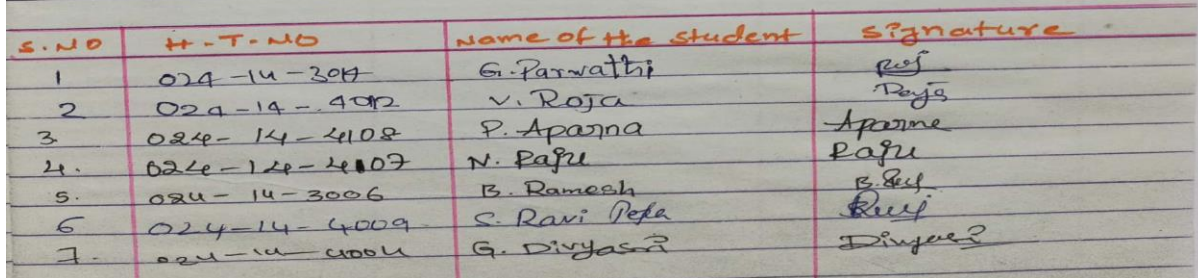 S.NO H-T-NO Name of the student Signature
1 024-14-3017 G.Parwathi
2 024-14-4012 V. Roja Roja
3 024-14-4108 P. Aparna Aparna
4. 024-14-4107 N. Raju Raju
5. 024-14-3006 B. Ramesh
6 024-14-4009 S. Ravi
7. 024-14-4004 G. Divyasri Divyasri